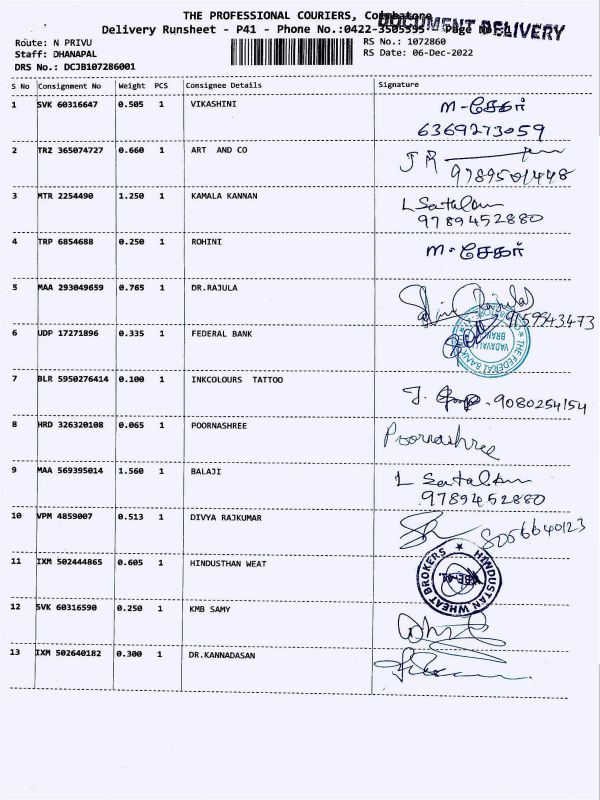 THE PROFESSIONAL COURIERS, Coimbatore
DOCUMENT DELIVERY
Delivery Runsheet - P41 - Phone No.:0422-3505595 Page No.:1
Route: N PRIVU RS No.: 1072860
Staff: DHANAPAL RS Date: 06-Dec-2022
DRS No.: DCJB107286001
S No Consignment No Weight PCS Consignee Details Signature
1 SVK 60316647 0.505 1 VIKASHINI M-சேகர்
6369273059
2 TRZ 365074727 0.660 1 ART AND CO
9789501448
3 MTR 2254490 1.250 1 KAMALA KANNAN L
9789452880
4 TRP 6854688 0.250 1 ROHINI M-சேகர்
5 MAA 293049659 0.765 1 DR.RAJULA
9159943473
6 UDP 17271896 0.335 1 FEDERAL BANK
THE FEDERAL BANK
7 BLR 5950276414 0.100 1 INKCOLOURS TATTOO
9080254154
8 HRD 326320108 0.065 1 POORNASHREE Poornashree
9 MAA 569395014 1.560 1 BALAJI L
9789452880
10 VPM 4859007 0.513 1 DIVYA RAJKUMAR 8056640123
11 IXM 502444865 0.605 1 HINDUSTHAN WEAT HINDUSTAN WHEAT BROKERS
12 SVK 60316590 0.250 1 KMB SAMY
13 IXM 502640182 0.300 1 DR.KANNADASAN